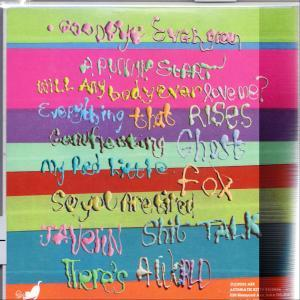 Goodbye Evergreen
A Running Start
Will Anybody Ever love me?
Everything that RISES
Genuflecting Ghost
My Red Little
Fox
So You Are tired
JAVELIN Shit TALK
There's A World